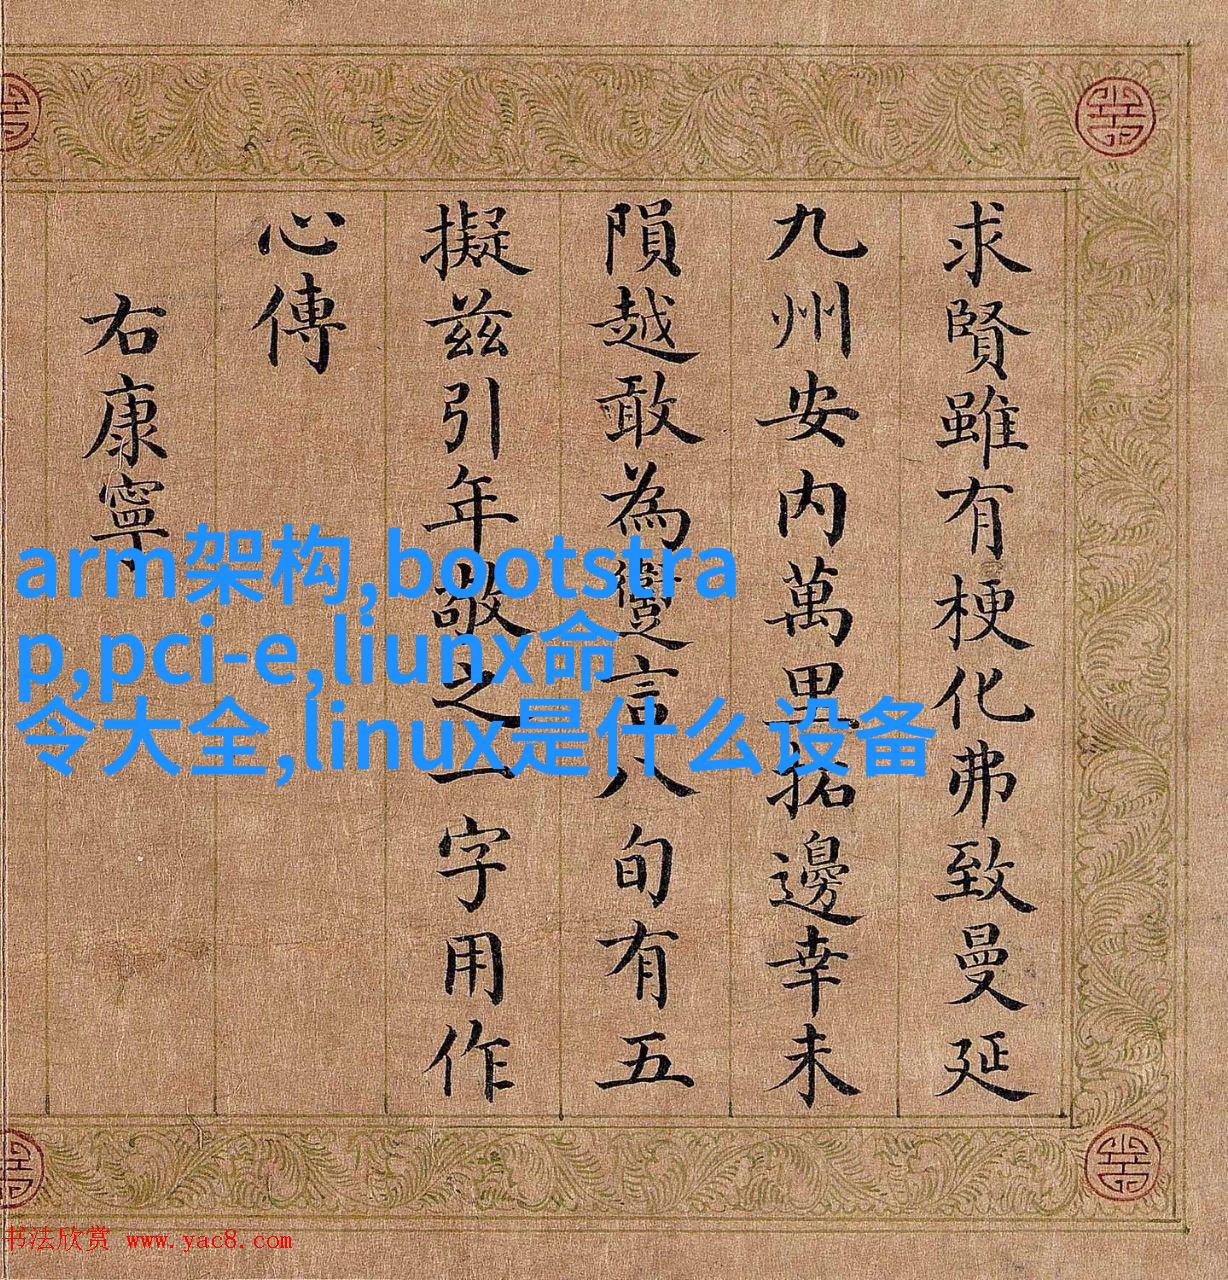 求賢雖有梗化弗致曼延
九州安内萬里拓邊幸未
隕越敢為躗言八旬有五
擬兹引年敬之一字用作
心傳
右康寧
arm架构,bootstra
p,pci-e,liunx命
令大全,linux是什么设备
书法欣赏 www.yac8.com